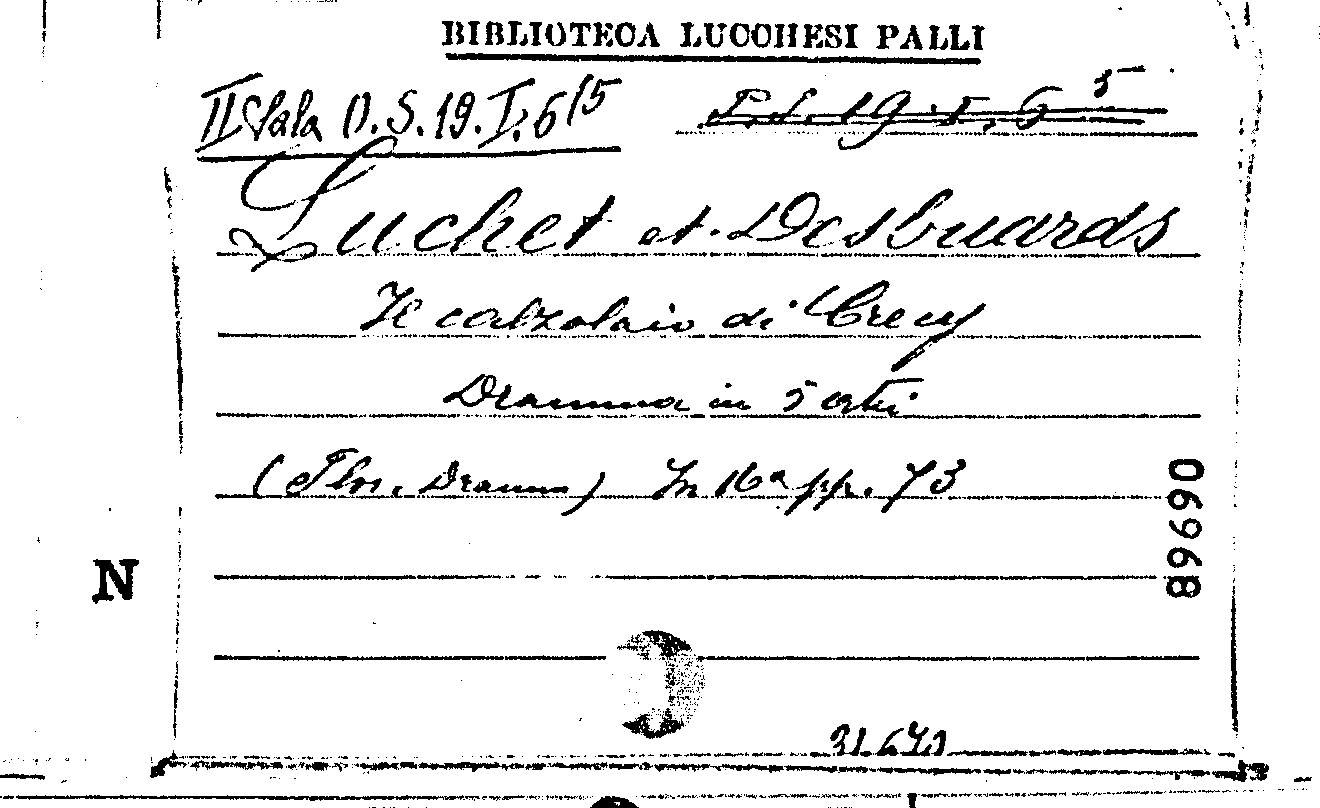 BIBLIOTECA LUCCHESI PALLI
II Sala O.S.19.I.6/5
P.S. 19.I.6 5
Luchet et Desbuards
Il calzolaio di Crecy
Dramma in 5 atti
(Flor. Dramm) In 16° pp. 73
89690
N
31.670